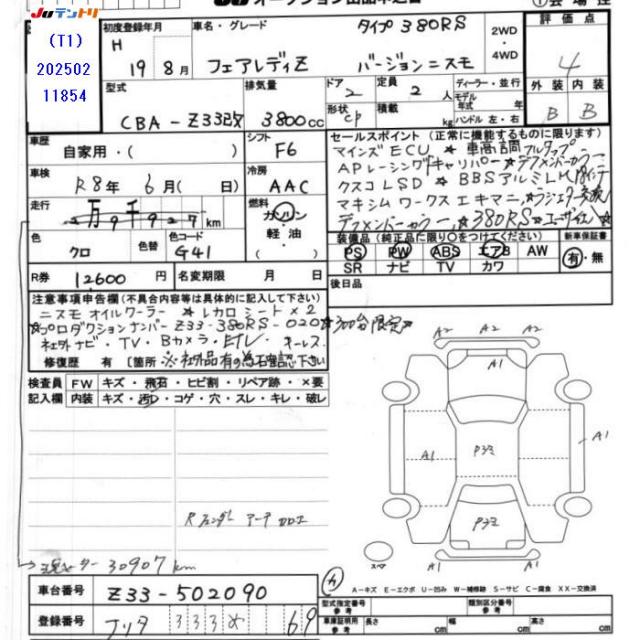 JUテントリ
オークション出品申込書
① 会場
(T1)
202502
11854
初度登録年月
H 19年 8月
車名・グレード
タイプ380RS
フェアレディZ バージョンニスモ
2WD
・
4WD
評価点
4
外装 内装
B B
型式
CBA-Z33改
排気量
3800cc
ドア 2
形状 CP
定員 2人
積載 kg
ディーラー・並行
モデル年式 年式
ハンドル 左・右
車歴
自家用・( )
シフト
F6
車検
R8年 6月( 日)
冷房
AAC
走行
2万9千927km
燃料
ガソリン
・
軽油
・
( )
色
クロ
色替
色コード
G41
R券
12600円
名変期限 月 日
セールスポイント (正常に機能するものに限ります)
マインズECU ★ 車高調フルタップ
APレーシングキャリパー ★ デフメンバーカラー
クスコLSD ★ BBSアルミLM 18インチ
マキシムワークスエキマニ ★ ラジエター交換
デフメンバーカラー ★380RS★ユーザー買入★
装備品 (純正品に限り○をつけてください)
PS PW ABS エアB AW
SR ナビ TV カワ
新車保証書
有・無
後日品
注意事項申告欄 (不具合内容等は具体的に記入して下さい)
ニスモオイルクーラー ★レカロシート×2
★プロダクションナンバーZ33-380RS-020★300台限定★
社外ナビ・TV・Bカメラ・ETC・キーレス
修復歴 有 [箇所 ※社外品有の為石確認下さい
検査員記入欄
FW キズ・飛石・ヒビ割・リペア跡・×要
内装 キズ・汚れ・コゲ・穴・スレ・キレ・破レ
Rフェンダーアーチ加工
→現メーター30907km
A2 A2
A1
A1 P3ミ A1
P3ミ
スペア
A-キズ E-エクボ U-凹み W-補修跡 S-サビ C-腐食 XX-交換済
車台番号
Z33-502090
登録番号
フリタ 333 め 69
型式指定番号 参考
類別区分番号 参考
車庫証明用 参考
長さ cm 幅 cm 高さ cm